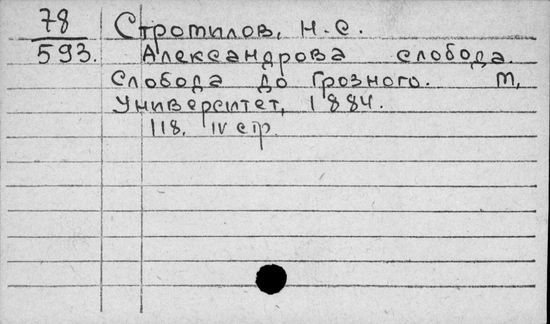 78 Стротилов, Н.С.
593. Александрова слобода.
Слобода до Грозного. М,
Университет, 1884.
118. IV стр.